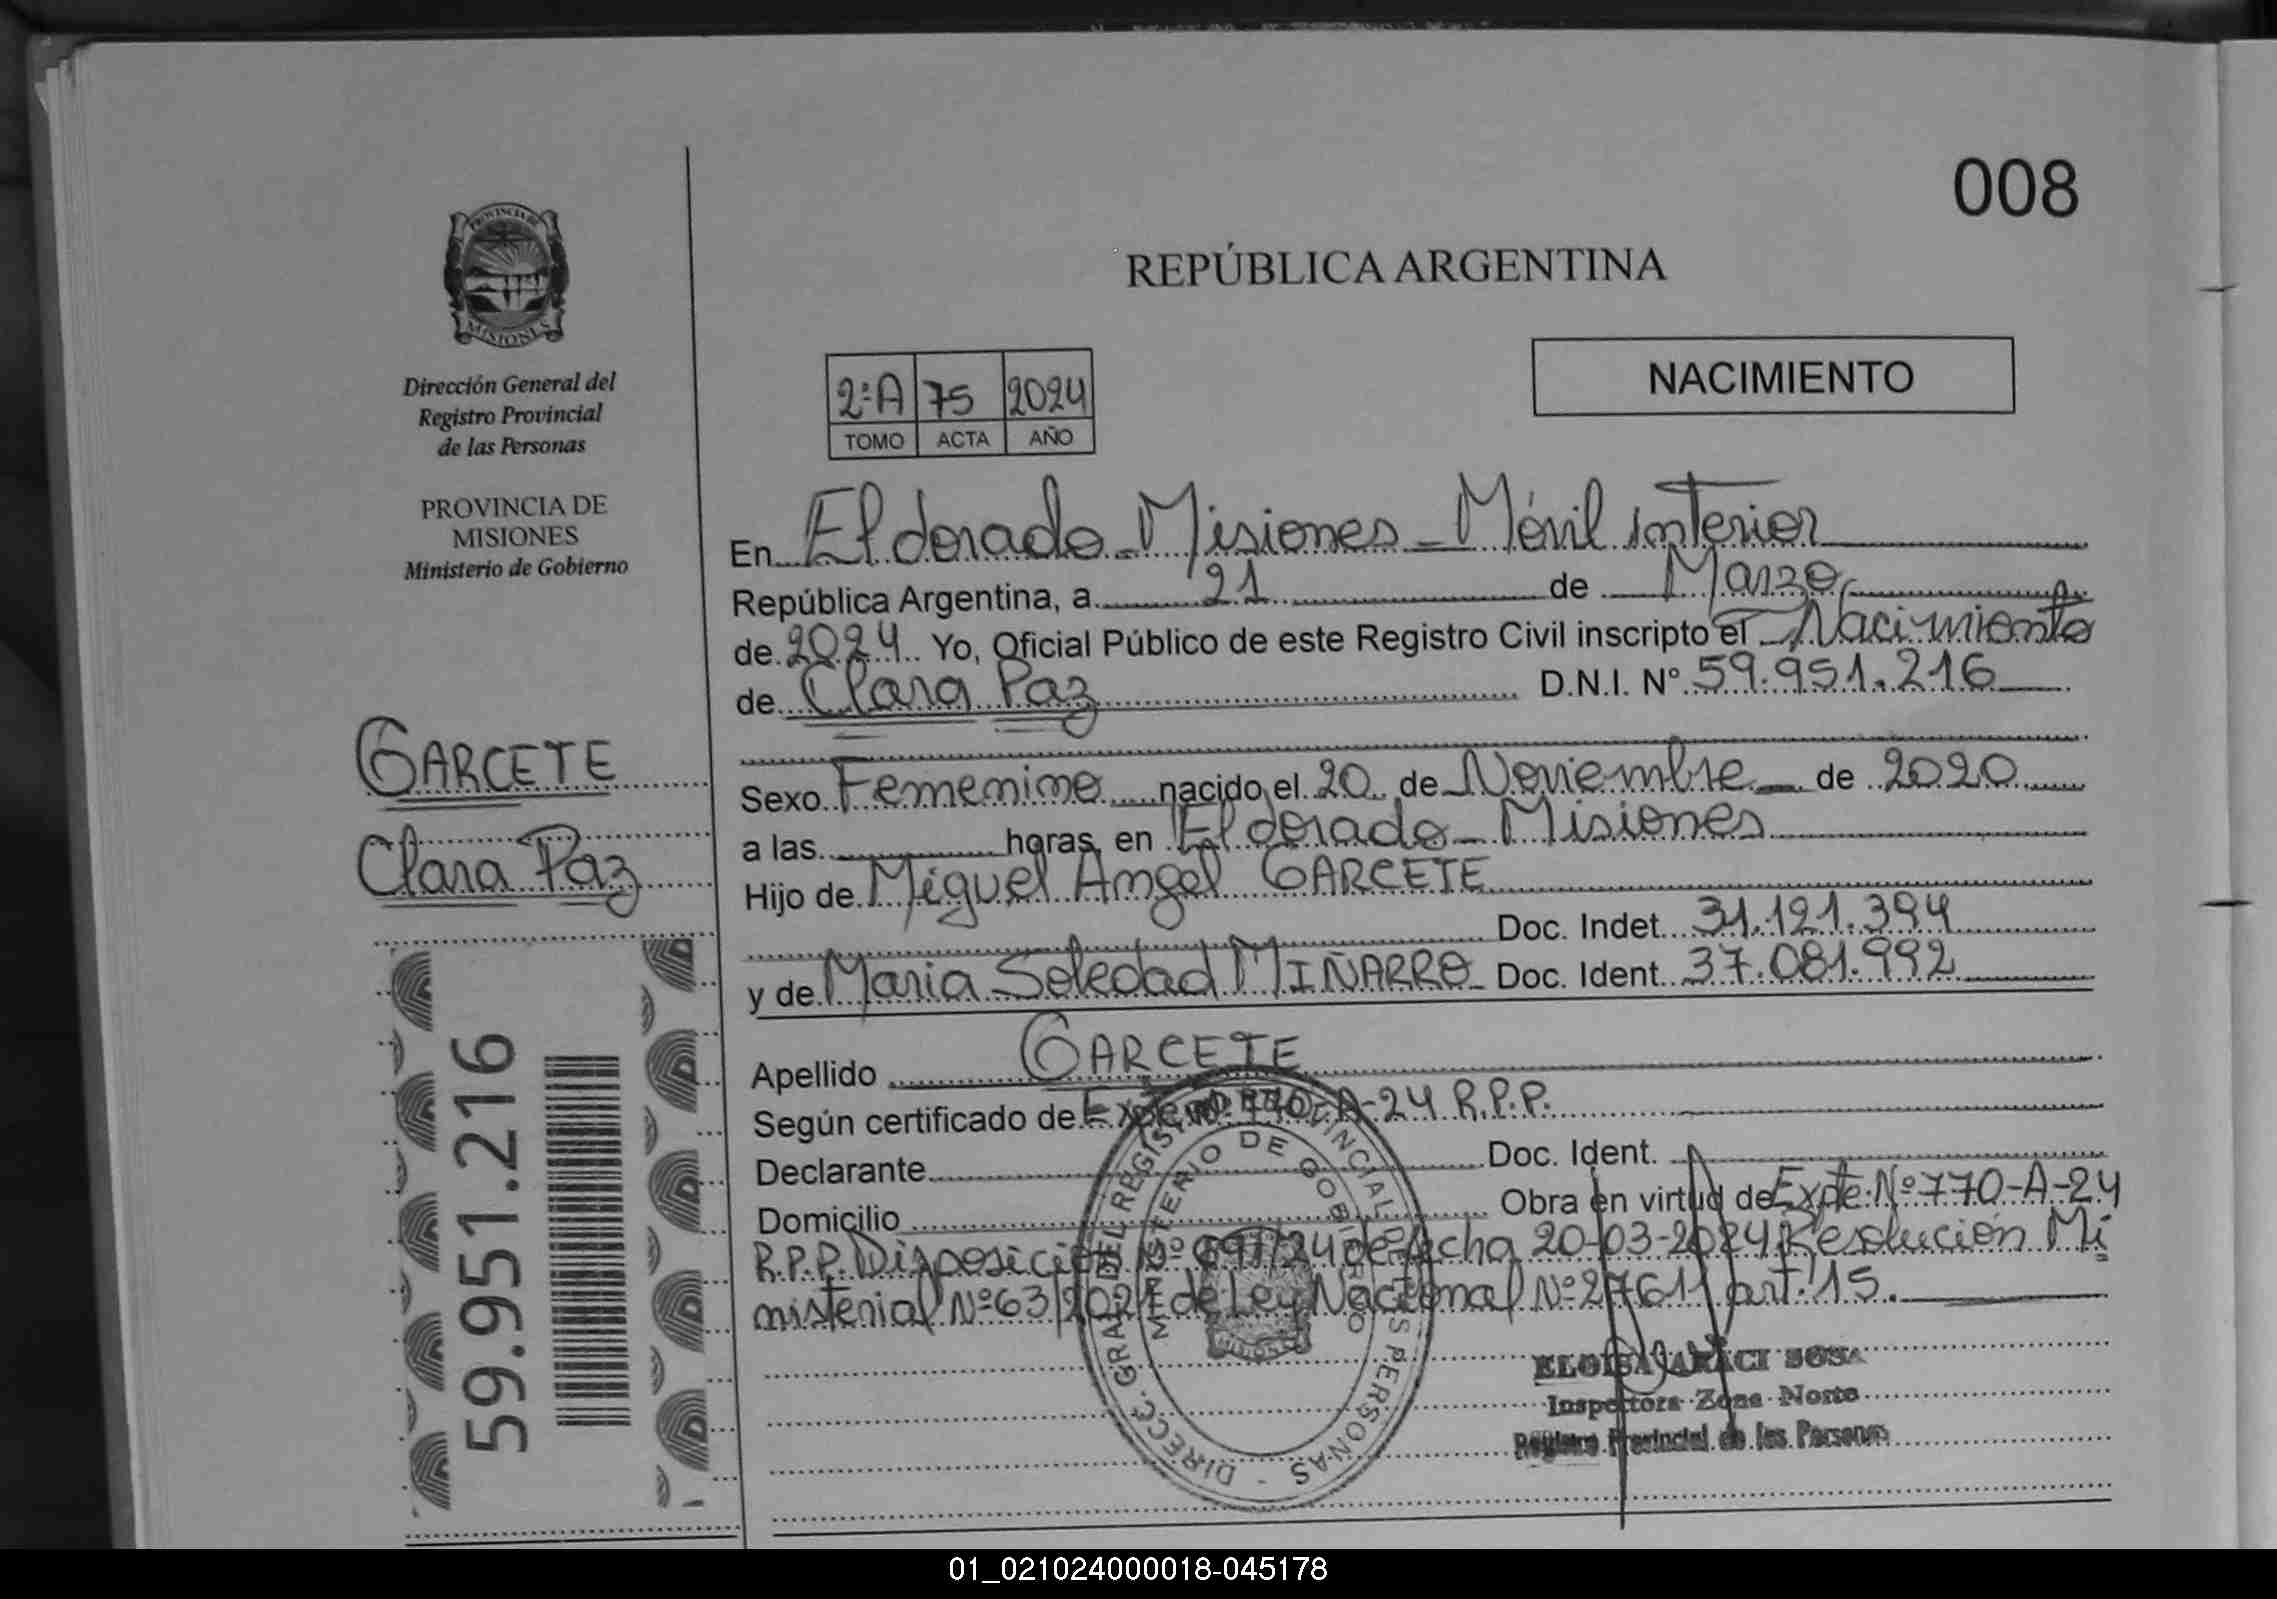 008
PROVINCIA DE
MISIONES
Dirección General del
Registro Provincial
de las Personas
PROVINCIA DE
MISIONES
Ministerio de Gobierno
GARCETE
Clara Paz
59.951.216
REPÚBLICA ARGENTINA
NACIMIENTO
2ºA 75 2024
TOMO ACTA AÑO
En Eldorado - Misiones - Móvil interior
República Argentina, a 21 de Marzo
de 2024 Yo, Oficial Público de este Registro Civil inscripto el Nacimiento
de Clara Paz D.N.I. N° 59.951.216
Sexo Femenino nacido el 20 de Noviembre de 2020
a las horas, en Eldorado - Misiones
Hijo de Miguel Angel GARCETE
Doc. Indet. 31.121.394
y de Maria Soledad MIÑARRO Doc. Ident. 37.081.992
Apellido GARCETE
Según certificado de Expte Nº 770-A-24 R.P.P.
Declarante Doc. Ident.
Domicilio Obra en virtud de Expte. Nº 770-A-24
R.P.P. Disposición Nº /24 de fecha 20-03-2024 Resolución Mi
nisterial Nº 63/2021 de Ley Nacional Nº 27611 art. 15.
DIRECC. GRAL. DEL REGISTRO PROVINCIAL DE LAS PERSONAS -
MINISTERIO DE GOBIERNO
MISIONES
ELOISA ARACI SOSA
Inspectora Zona Norte
Registro Provincial de las Personas
01_021024000018-045178